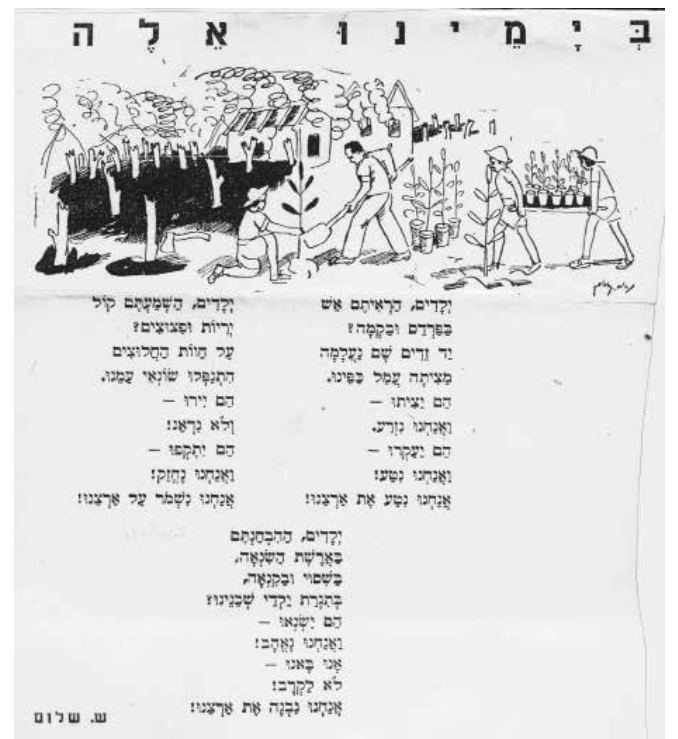 בְּיָמֵינוּ אֵלֶה
יְלָדִים, הַרְאִיתֶם אֵשׁ
בַּפַּרְדֵּס וּבַקָּמָה?
יַד זֵדִים שָׁם נֶעֱלָמָה
מַצִּיתָה עֲמַל כַּפֵּינוּ.
הֵם יַצִּיתוּ –
וַאֲנַחְנוּ נִזְרַע.
הֵם יַעַקְרוּ –
וַאֲנַחְנוּ נִטַּע!
אֲנַחְנוּ נִטַּע אֶת אַרְצֵנוּ!
יְלָדִים, הַשְׁמַעְתֶּם קוֹל
יְרִיּוֹת וּפִצּוּצִים?
עַל חַוּוֹת הַחֲלוּצִים
הִתְנַפְּלוּ שׂוֹנְאֵי עַמֵּנוּ.
הֵם יִירוּ –
וְלֹא נִדְאַג!
הֵם יִתְקְפוּ –
וַאֲנַחְנוּ נֶחֱזַק!
אֲנַחְנוּ נִשְׁמֹר עַל אַרְצֵנוּ!
יְלָדִים, הַהִבְחַנְתֶּם
בַּאֲרֶשֶׁת הַשִּׂנְאָה,
בַּשִּׁסּוּי וּבַקִּנְאָה,
בְּתִגְרַת יַלְדֵי שְׁכֵנֵינוּ?
הֵם יִשְׂנְאוּ –
וַאֲנַחְנוּ נֶאֱהַב!
אָנוּ בָּאנוּ –
לֹא לַקְרָב!
אֲנַחְנוּ נִבְנֶה אֶת אַרְצֵנוּ!
ש. שלום